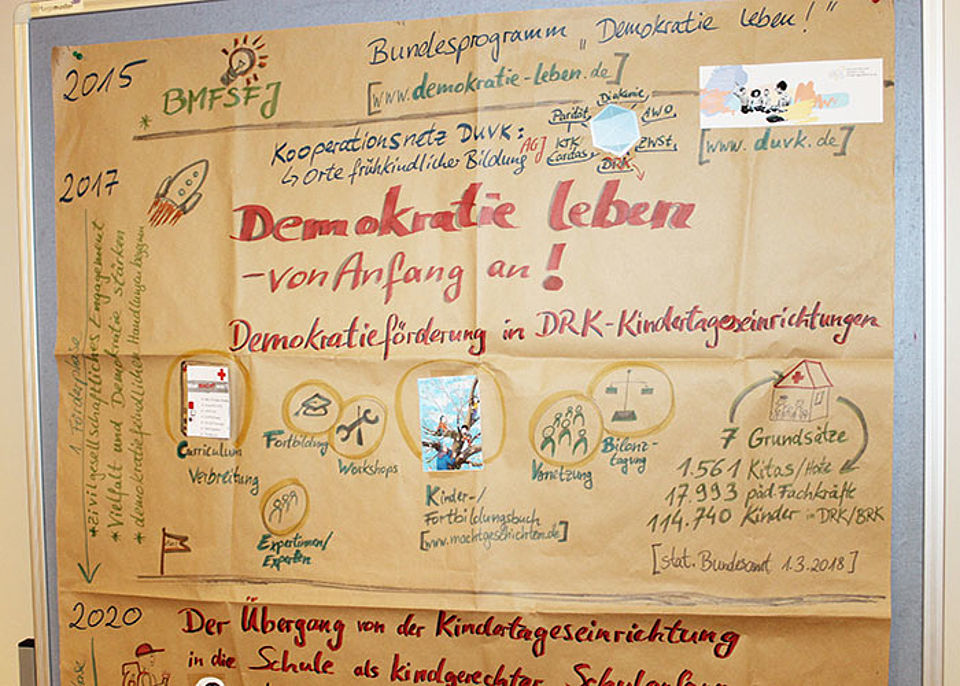 2015
BMFSFJ
Bundesprogramm „Demokratie leben!"
[www.demokratie-leben.de]
Kooperationsnetz DUVK:
↳ Orte frühkindlicher Bildung
AGJ
Diakonie
AWO
ZWSt.
DRK
KTK
Caritas
Parität
[www.duvk.de]
2017
Demokratie leben
-von Anfang an!
Demokratieförderung in DRK-Kindertageseinrichtungen
1. Förderphase
*zivilgesellschaftliches Engagement
*Vielfalt und Demokratie stärken
*demokratiefeindlichen Handlungen begegnen
Curriculum
Verbreitung
Fortbildung
Workshops
Expertinnen/
Experten
Kinder-/
Fortbildungsbuch
[www.machtgeschichten.de]
Vernetzung
Bilanz-
tagung
7 Grundsätze
1.561 Kitas/Horte
17.993 päd. Fachkräfte
114.740 Kinder in DRK/BRK
[stat. Bundesamt 1.3.2018]
2020
Der Übergang von der Kindertageseinrichtung
in die Schule als kindgerechter